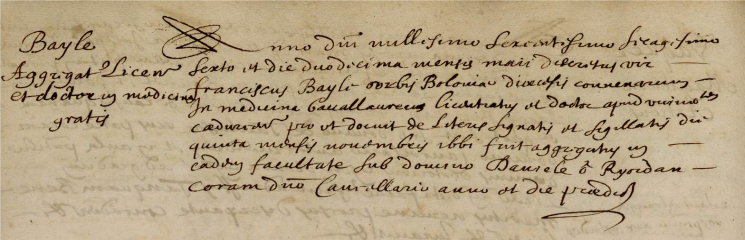 Bayle
Aggregato Licen
et doctor in medicina
gratis
Anno dni millesimo sexcentisimo sexagesimo
sexto et die duodecima mensis maii discretus vir
franciscus Bayle orbis Bolonia diocesis convenarum
In medicina baccallaureus licentiatus et doctor apud
pro et docuit de Literis signatis et sigillatis die
quinta mensis novembris ibbi fuit aggregatus in
eadem facultate sub domino
Coram dno Cancellario anno et die prædict